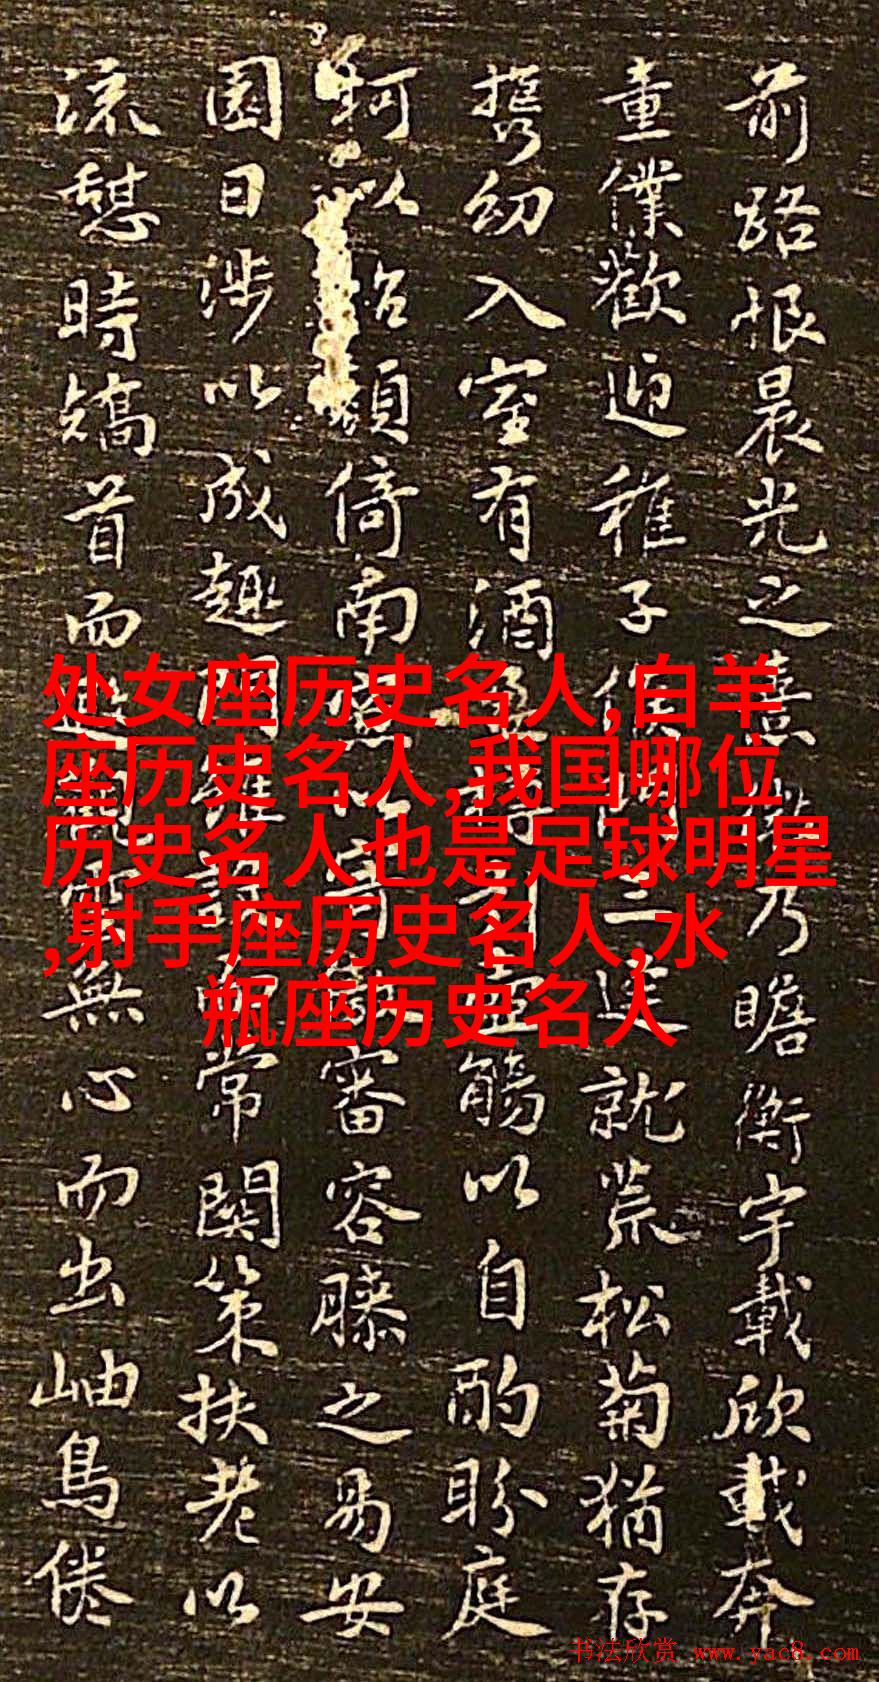 前路恨晨光之憙微乃瞻衡宇載欣載奔
童僕歡迎稚子候門三逕就荒松菊猶存
攜幼入室有酒盈樽引壺觴以自酌眄庭
柯以怡顏倚南窓以寄傲審容膝之易安
園日涉以成趣門雖設而常關策扶老以
流憩時矯首而遐觀雲無心而出岫鳥倦
处女座历史名人,白羊
座历史名人,我国哪位
历史名人也是足球明星
,射手座历史名人,水
瓶座历史名人
书法欣赏 www.yac8.com